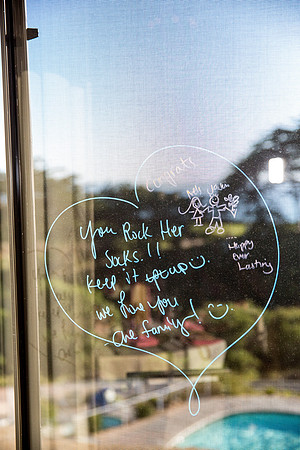 Congrats
You Rock Her
Socks !!
Keep it up
we love you
One family!
Happy
Ever
Lasting